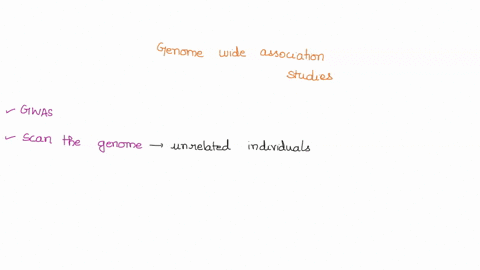 Genome wide association
studies
✓ GWAS
✓ Scan the genome → unrelated individuals